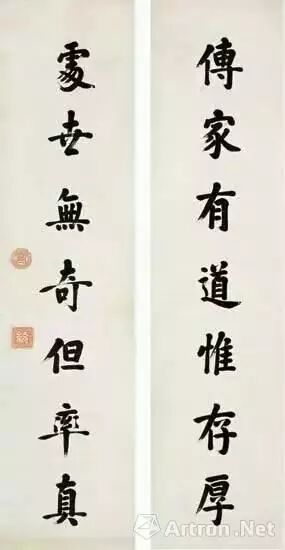 傳家有道惟存厚
處世無奇但率真
Artron.Net